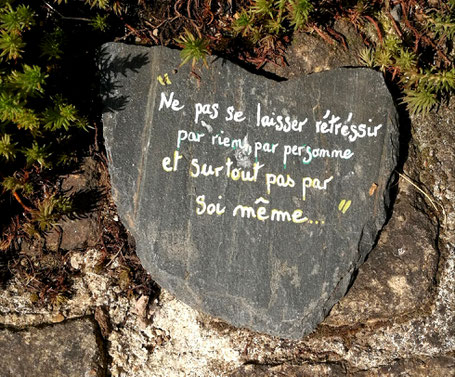 "Ne pas se laisser rétréssir
par rien, par personne
et surtout pas par
soi même... "